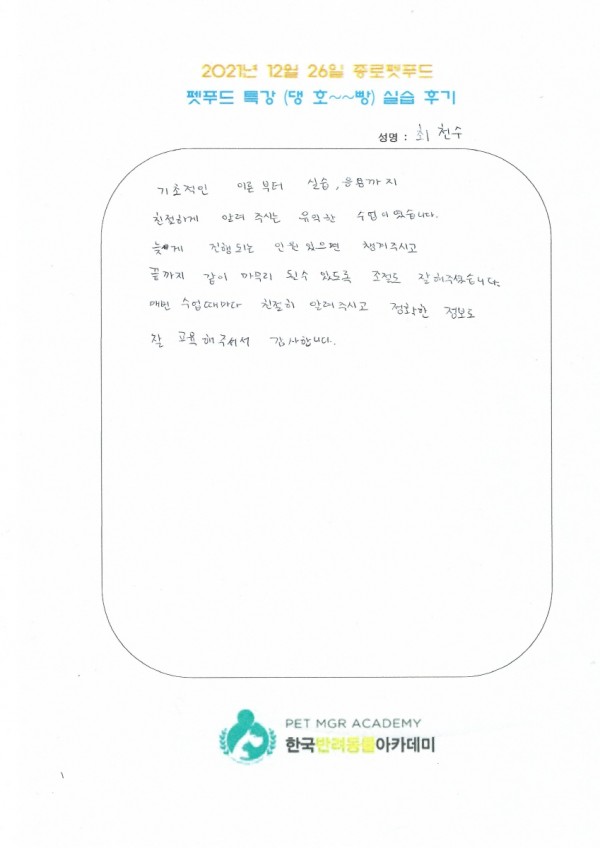 2021년 12월 26일 종로펫푸드
펫푸드 특강 (댕 호~~빵) 실습 후기
성명 : 최천수
기초적인 이론부터 실습, 응용까지
친절하게 알려 주시는 유익한 수업이었습니다.
늦게 진행되는 인원있으면 챙겨주시고
끝까지 같이 마무리 될수 있도록 조절도 잘해주셨습니다.
매번 수업때마다 친절히 알려주시고 정확한 정보로
잘 교육해주셔서 감사합니다.
PET MGR ACADEMY
한국반려동물아카데미